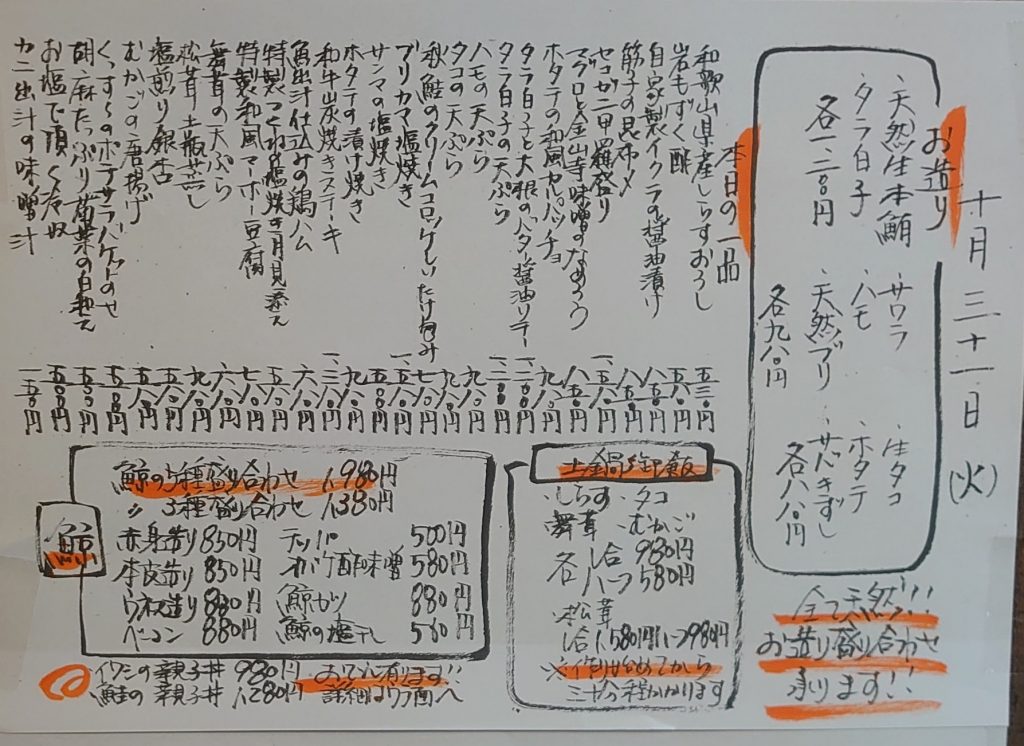 十月三十一日(火)
お造り
・天然生本鮪
・タラ白子
各一、二八〇円
・サワラ
・ハモ
・天然ブリ
各九八〇円
・生タコ
・ホタテ
・サバきずし
各八八〇円
全て天然!!
お造り盛り合わせ
承ります!!
本日の一品
和歌山県産しらすおろし 五三〇円
岩もずく酢 五八〇円
自家製イクラの醤油漬け 八五〇円
筋子の昆布〆 八八〇円
セコガニ甲羅盛り
マグロと金山寺味噌のなめろう 八五〇円
ホタテの和風カルパッチョ 九八〇円
タラ白子と大根のバター醤油ソテー 一、二八〇円
タラ白子の天ぷら 一、二八〇円
ハモの天ぷら 九八〇円
タコの天ぷら 九八〇円
秋鮭のクリームコロッケしいたけ包み 七八〇円
ブリカマ塩焼き
サンマの塩焼き
ホタテの漬け焼き 九八〇円
和牛炭焼きステーキ
魚出汁仕込みの鶏ハム 六八〇円
特製つくね塩焼き月見添え 五八〇円
特製和風マーボー豆腐 七八〇円
舞茸の天ぷら 六八〇円
松茸土瓶蒸し 九八〇円
塩煎り銀杏 五八〇円
むかごの唐揚げ 五八〇円
くっするのポテサラバゲットのせ
胡麻たっぷり菊菜の白和え
お塩で頂く冷奴
カニ出汁の味噌汁
鯨
鯨の5種盛り合わせ 1,980円
〃 3種盛り合わせ 1,380円
赤身造り 850円 テッパ 500円
本皮造り 850円 オバケ酢味噌 580円
ウネス造り 880円 鯨カツ 880円
ベーコン 880円 鯨の塩干し 560円
イワシの親子丼 980円
鮭の親子丼 1,280円
おワイン有ります!!
詳細はウラ面へ
土鍋御飯
・しらす ・タコ
・舞茸 ・むかご
各 1合 980円
ハーフ 580円
・松茸
1合 1,580円 ハーフ 980円
※ご注文頂いてから
三十分程かかります